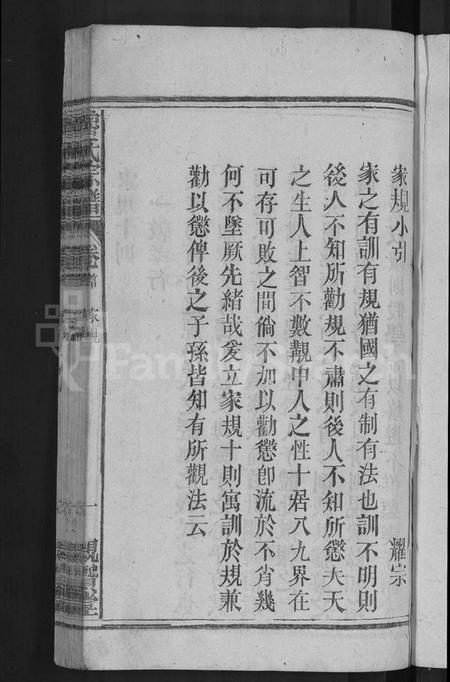 家規小引　耀宗
家之有訓有規猶國之有制有法也訓不明則
後人不知所勸規不肅則後人不知所懲夫天
之生人上智不數覯中人之性十居八九界在
可存可敗之間倘不加以勸懲卽流於不肖幾
何不墜厥先緒哉爰立家規十則寓訓於規兼
勸以懲俾後之子孫皆知有所觀法云
氏宗譜 卷首 家規 一
FamilySearch